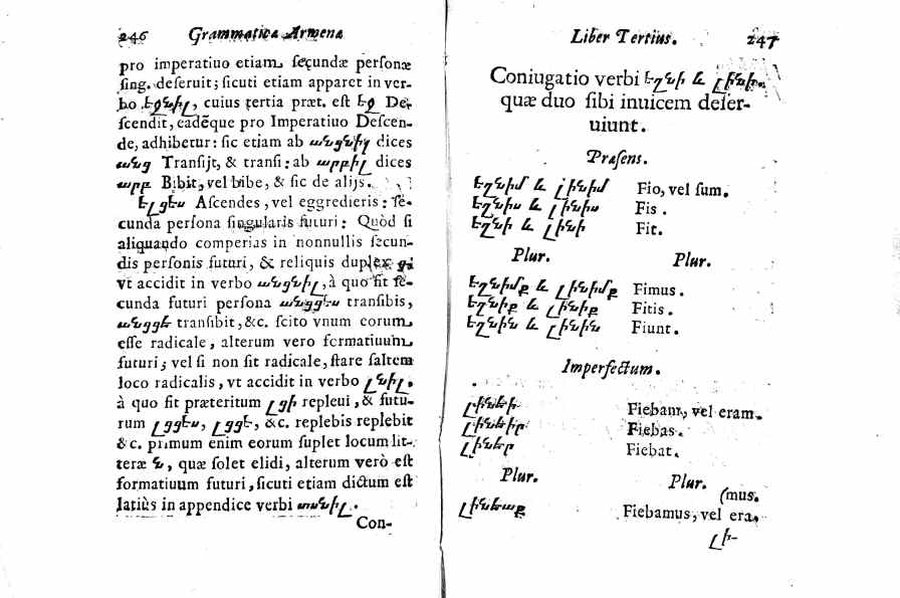 246 Grammatica Armena
pro imperatiuo etiam secundæ personæ
sing. deseruit; sicuti etiam apparet in ver-
bo էջնիլ, cuius tertia præt. est էջ Des
scendit, eadēque pro Imperatiuo Descen-
de, adhibetur: sic etiam ab անցնիլ dices
անց Transijt, & transi: ab արբիլ dices
արբ Bibit, vel bibe, & sic de alijs.
ելցես Ascendes, vel eggredieris: se-
cunda persona singularis futuri: Quòd si
aliquando comperias in nonnullis secun-
dis personis futuri, & reliquis duplex ց
vt accidit in verbo անցնիլ, à quo fit se-
cunda futuri persona անցցես transibis,
անցցե transibit, &c. scito vnum eorum
esse radicale, alterum vero formatiuum
futuri; vel si non sit radicale, stare saltem
loco radicalis, vt accidit in verbo լնիլ.
à quo fit præteritum լցի repleui, & futu-
rum լցցես, լցցե, &c. replebis replebit
&c. primum enim eorum suplet locum lit-
teræ ն, quæ solet elidi, alterum verò est
formatiuum futuri, sicuti etiam dictum est
latiùs in appendice verbi տանիլ.
Con-
Liber Tertius. 247
Coniugatio verbi եղնի և լինի.
quæ duo sibi inuicem deser-
uiunt.
Præsens.
եղնիմ և լինիմ Fio, vel sum.
եղնիս և լինիս Fis.
եղնի և լինի Fit.
Plur. Plur.
եղնիմք և լինիմք Fimus.
եղնիք և լինիք Fitis.
եղնին և լինին Fiunt.
Imperfectum.
լինեի Fiebam, vel eram.
լինեիր Fiebas.
լիներ Fiebat.
Plur. Plur.
(mus.
լինեաք Fiebamus, vel era.
լի-